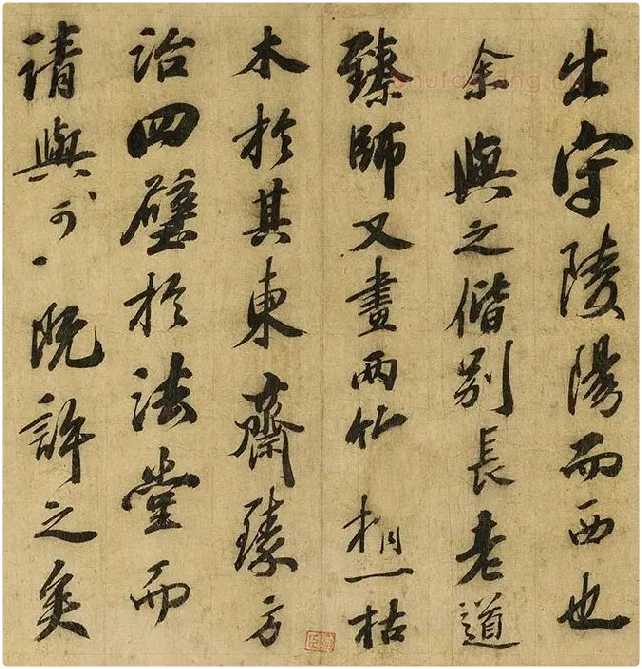 出守陵陽而西也
余與之偕別長老道
臻師又畫兩竹梢一枯
木於其東齋臻方
治四壁於法堂而
請與可、既許之矣